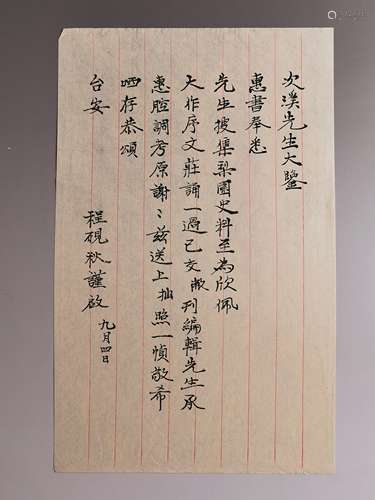 次溪先生大鑒
惠書奉悉
先生搜集梨園史料至為欣佩
大作序文莊誦一過已交敝刊編輯先生承
惠腔調考原謝〻茲送上拙照一幀敬希
哂存恭頌
台安
程硯秋謹啟
九月四日